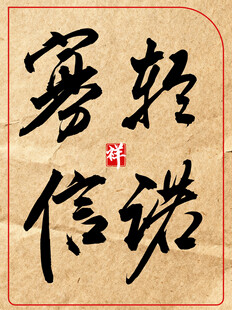 轻诺
寡信
祥